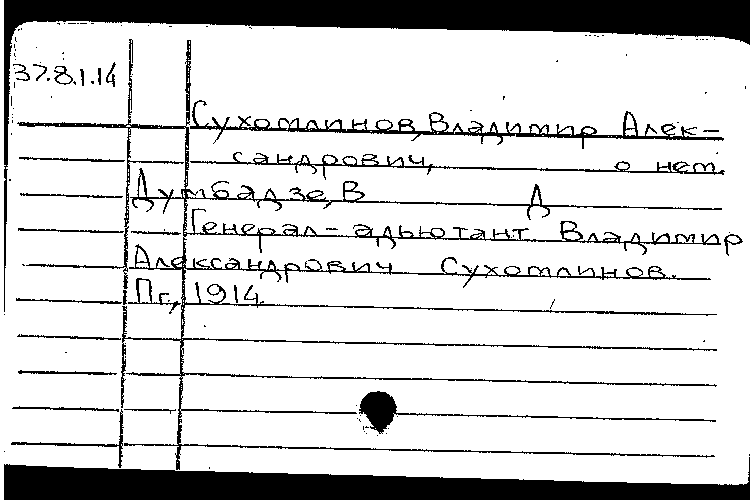 37.8.1.14
Сухомлинов, Владимир Алек-
сандрович, о нем.
Думбадзе, В Д
Генерал-адьютант Владимир
Александрович Сухомлинов.
Пг., 1914.